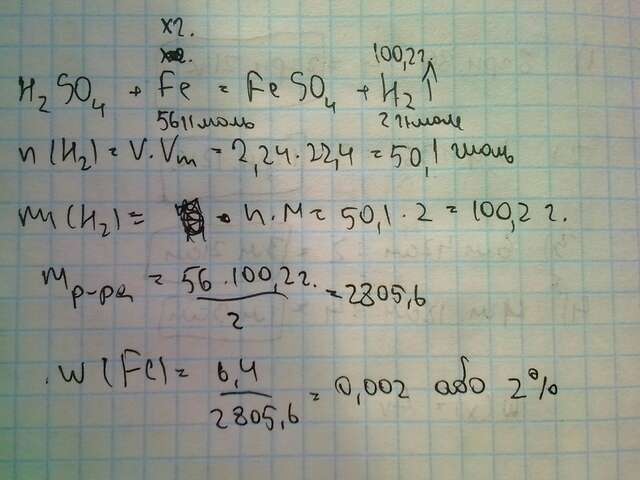 x2.
100,2г.
H₂SO₄ + Fe = FeSO₄ + H₂↑
56 г/моль 2 г/моль
n(H₂) = V·Vm = 2,24·22,4 = 50,1 г/моль
m(H₂) = n·M = 50,1·2 = 100,2 г.
m р-ра = 56·100,2г. / 2 = 2805,6
w(Fe) = 6,4 / 2805,6 = 0,002 або 2%